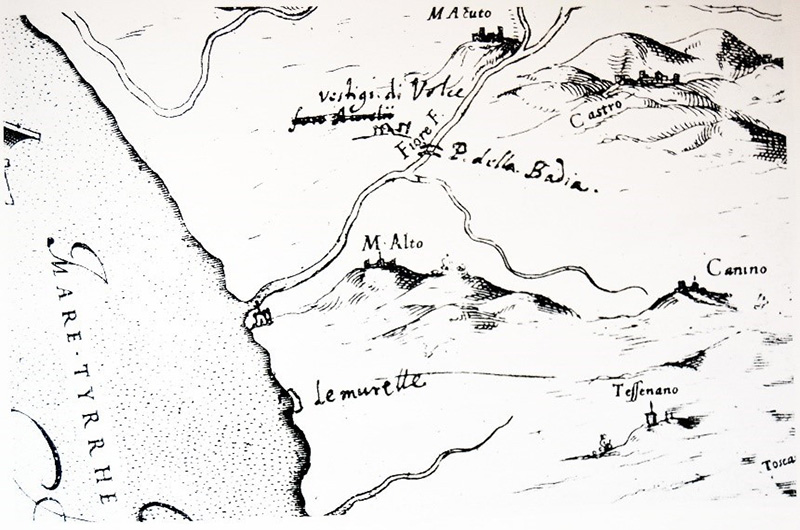 M Acuto
vestigi. di Volce
foro Aurelij
Castro
Fiore F.
P. della Badia.
M. Alto
Canino
MARE · TYRRHE
Le murette
Tessenano
Tosca